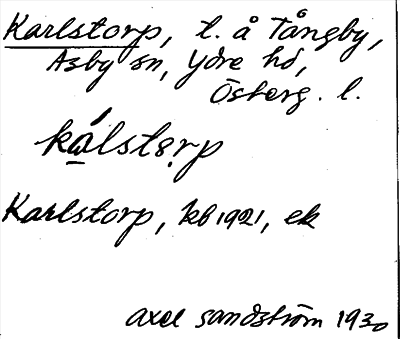 Karlstorp, t. å Tångby,
Asby sn, Ydre hd,
Österg. l.
kálstorp
Karlstorp, kb 1921, ek
Axel Sandström 1930